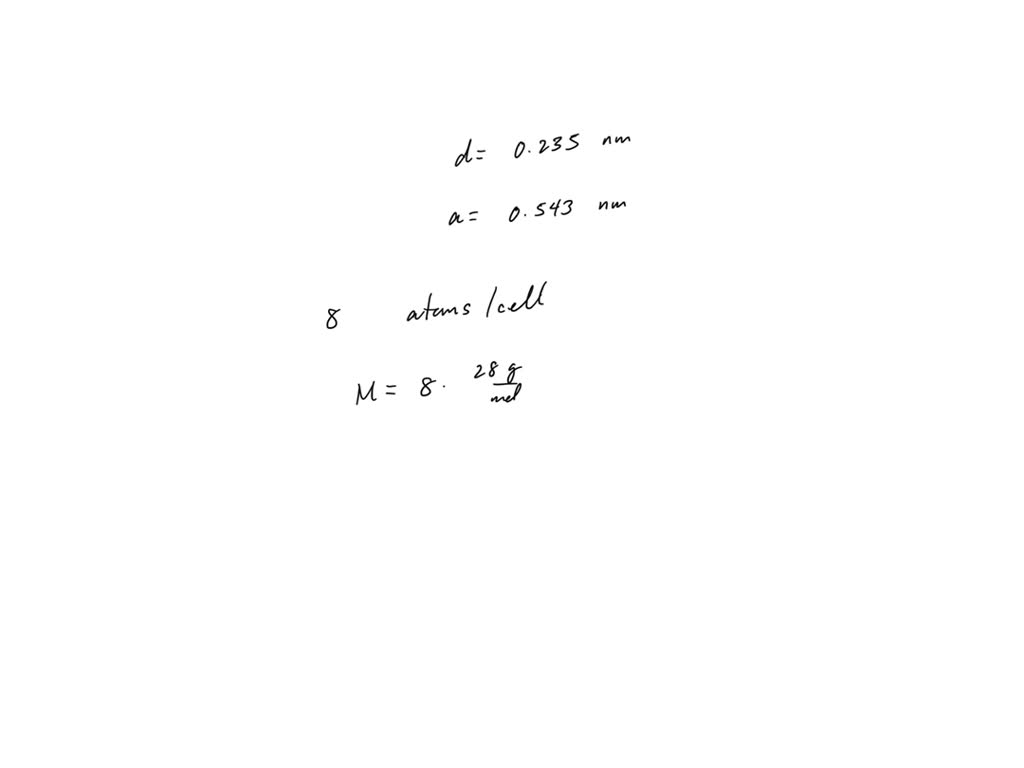 d= 0.235 nm
a= 0.543 nm
8 atoms /cell
M= 8. 28 g
mol